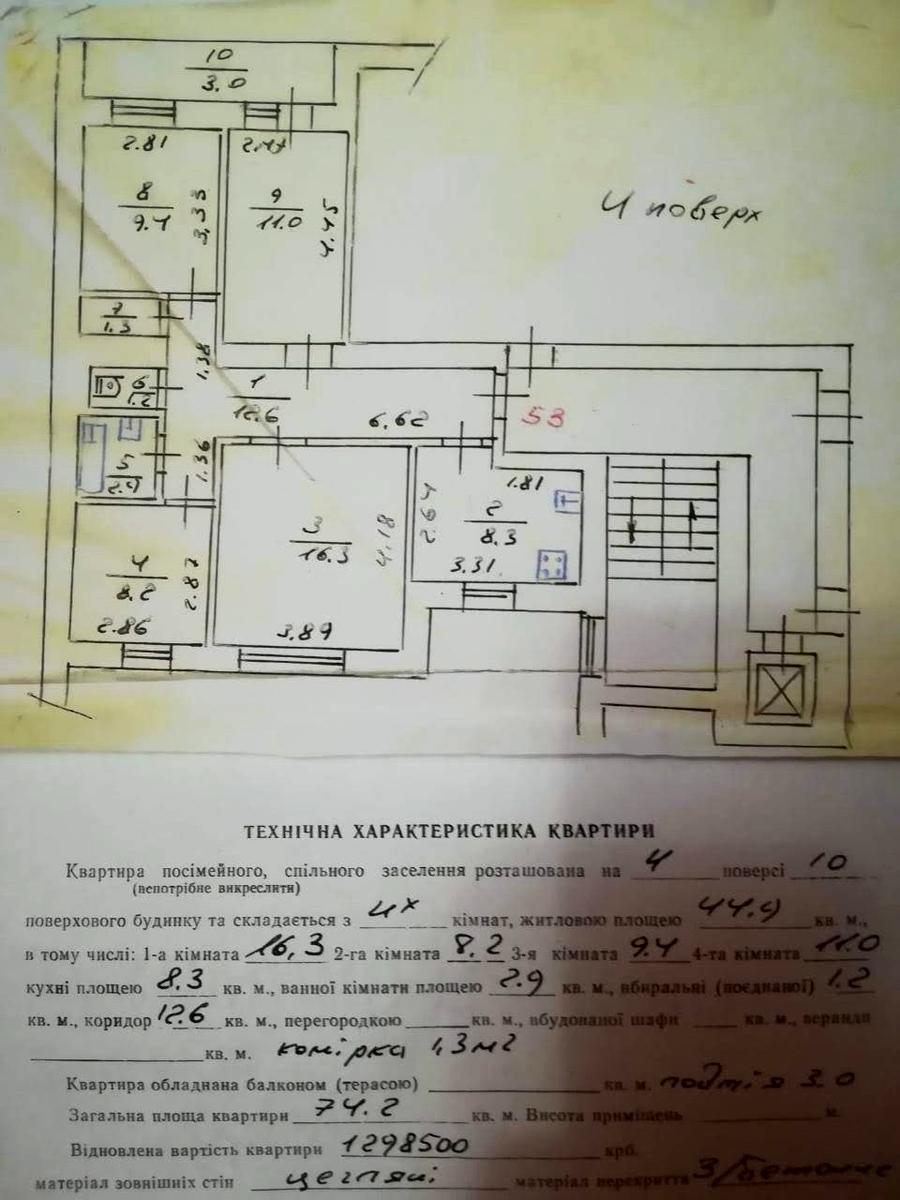 10
3.0
2.81
8
9.4
3,33
2.47
9
11.0
4.45
4 поверх
7
1.3
1.38
6
1.2
1
12.6
6.62
53
5
2.9
1.36
3
16.3
4.18
3.89
2.64
1.81
2
8.3
3.31
4
8.2
2.87
2.86
ТЕХНІЧНА ХАРАКТЕРИСТИКА КВАРТИРИ
Квартира посімейного, спільного заселення розташована на 4 поверсі 10
(непотрібне викреслити)
поверхового будинку та складається з 4х кімнат, житловою площею 44.9 кв. м.,
в тому числі: 1-а кімната 16,3 2-га кімната 8.2 3-я кімната 9.4 4-та кімната 11.0
кухні площею 8.3 кв. м., ванної кімнати площею 2.9 кв. м., вбиральні (поєднаної) 1.2
кв. м., коридор 12.6 кв. м., перегородкою кв. м., вбудованої шафи кв. м., веранди
кв. м. комірка 1,3 м2
Квартира обладнана балконом (терасою) кв. м. лоджія 3.0
Загальна площа квартири 74.2 кв. м. Висота приміщень м.
Відновлена вартість квартири 1298500 крб.
матеріал зовнішніх стін цегляні матеріал перекриття З/бетонне